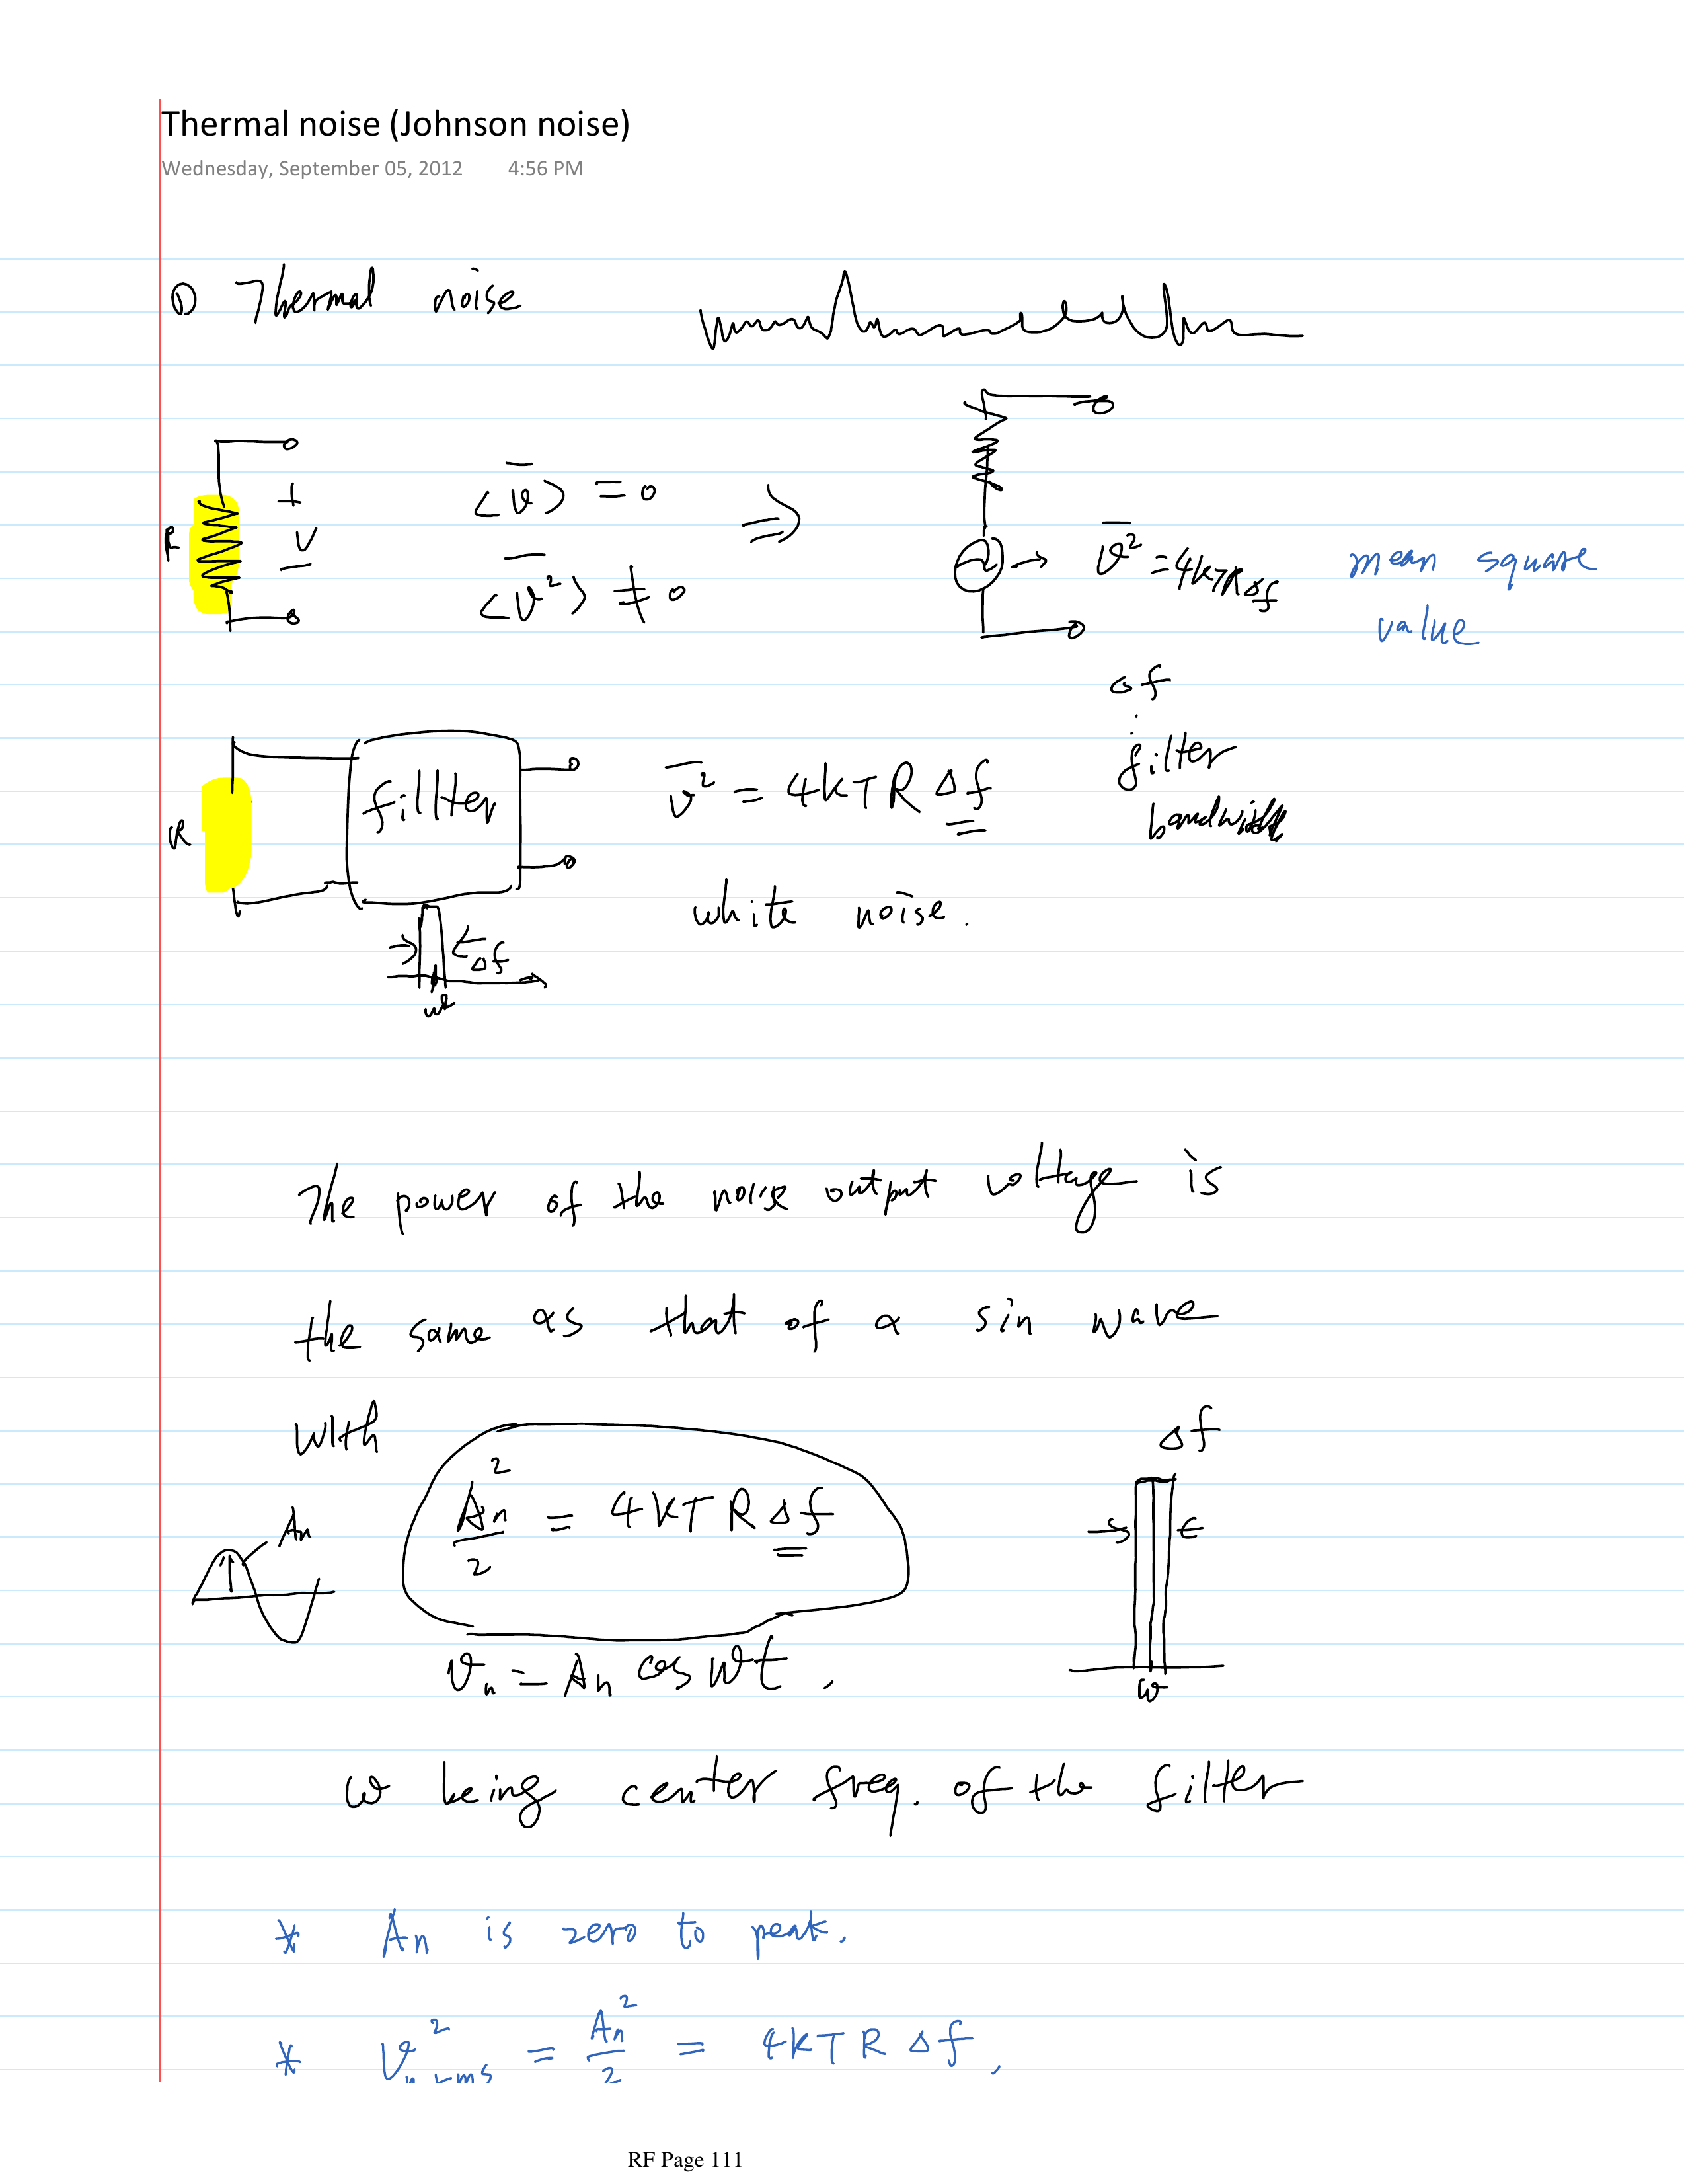 Thermal noise (Johnson noise)
Wednesday, September 05, 2012 4:56 PM
① Thermal noise
R + V −
<v̅> = 0
<v̅²> ≠ 0
⇒
→ v̅² = 4kTRΔf
mean square
value
Δf
:
filter
bandwidth
R
fillter
v̅² = 4kTRΔf
white noise.
Δf
ω
The power of the noise output voltage is
the same as that of a sin wave
with
An
An²/2 = 4kTRΔf
Δf
vn = An cos ωt,
ω
ω being center freq. of the filter
* An is zero to peak.
* v²n rms = An²/2 = 4kTRΔf,
RF Page 111